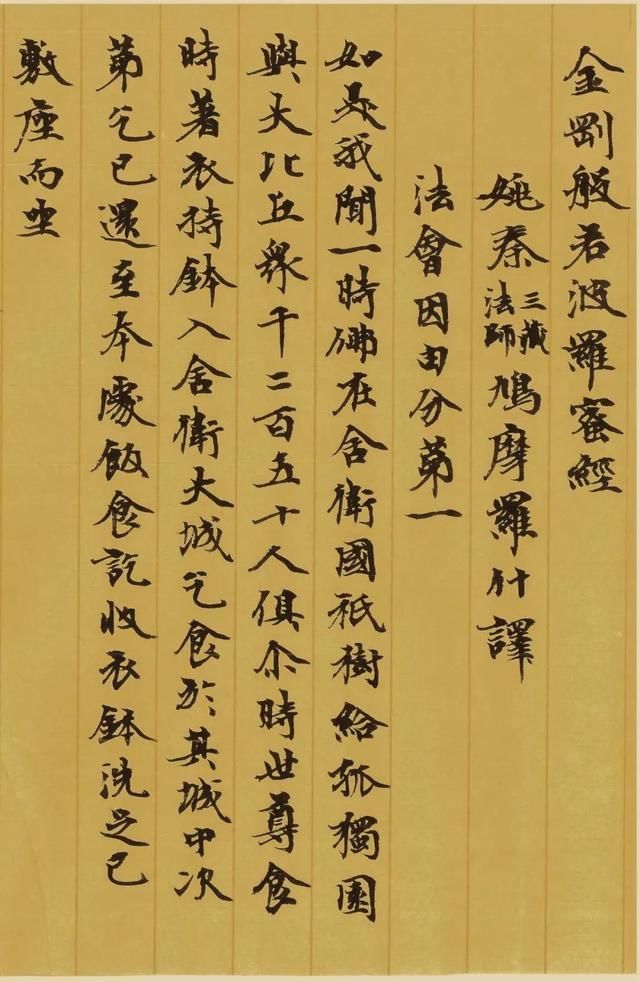 金剛般若波羅蜜經
姚秦三藏法師鳩摩羅什譯
法會因由分第一
如是我聞一時佛在舍衛國祇樹給孤獨園
與大比丘眾千二百五十人俱尒時世尊食
時著衣持鉢入舍衛大城乞食於其城中次
第乞已還至本處飯食訖收衣鉢洗足已
敷座而坐